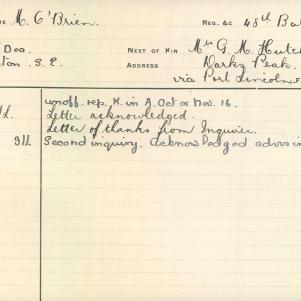 M. O'Brien. REG. &C 48th Ba
Doo. NEXT OF KIN Mrs G. M. Hutch
ton S.E. ADDRESS Darke Peak.
via Port Lincoln
unoff. rep. K. in A. Oct or Nov. 16.
Letter acknowledged.
Letter of thanks from Inquirer.
Second inquiry. Acknowledged advis in